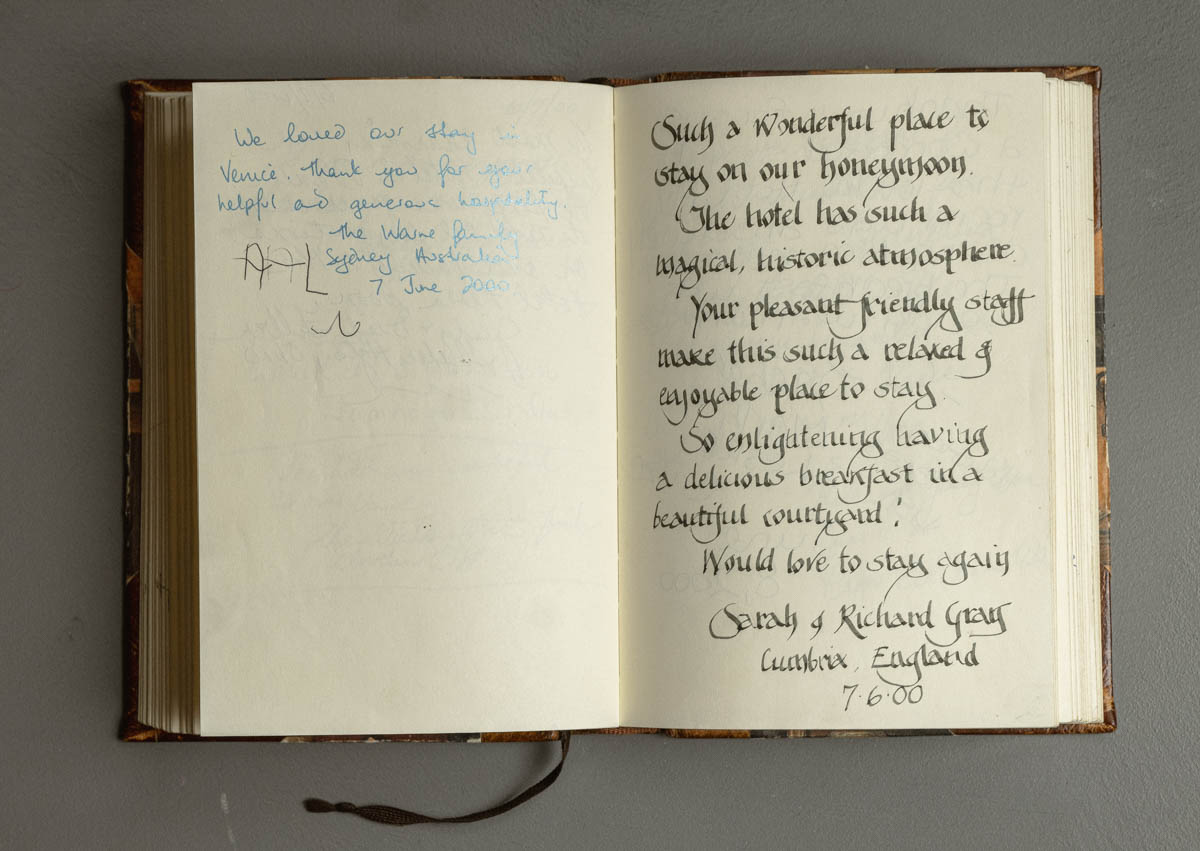 We loved our stay in
Venice. Thank you for your
helpful and generous hospitality.
The Warne family
Sydney Australia
7 June 2000
Such a Wonderful place to
stay on our honeymoon.
The hotel has such a
magical, historic atmosphere.
Your pleasant friendly staff
make this such a relaxed &
enjoyable place to stay.
So enlightening having
a delicious breakfast in a
beautiful courtyard!
Would love to stay again
Sarah & Richard Gray
Cumbria, England
7.6.00